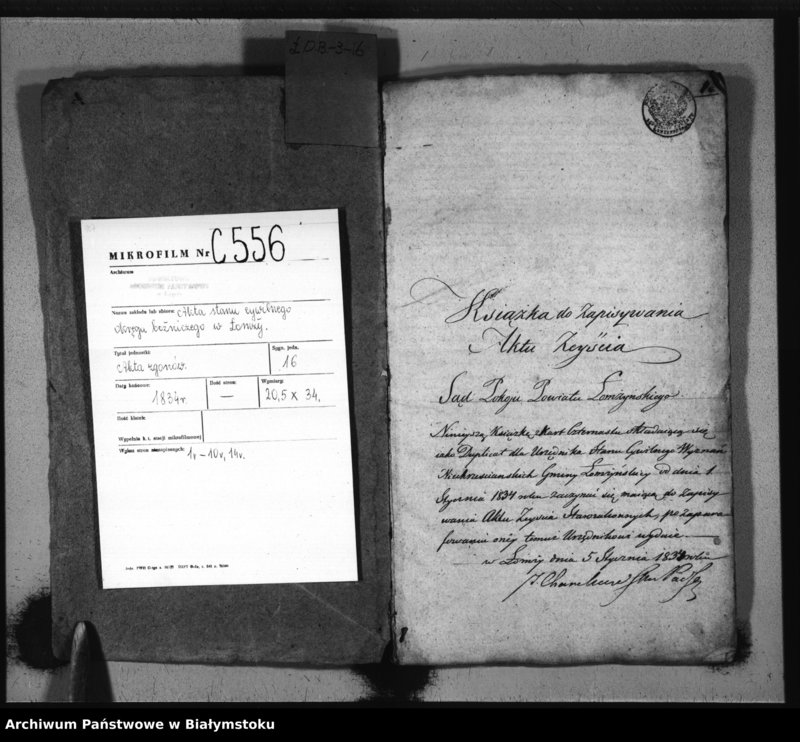 Ł.D.B-3-16
MIKROFILM Nr C556
Archiwum
Nazwa zakładu lub zbioru: Akta stanu cywilnego
okręgu bożniczego w Łomży.
Tytuł jednostki: Sygn. jedn.
Akta zgonów. 16
Daty końcowe: Ilość stron: Wymiary:
1834r. — 20,5 x 34.
Ilość klatek:
Wypełnia k. t. stacji mikrofilmowej
Wykaz stron niezapisanych: 1v – 10v, 14v.
Książka do Zapisywania
Aktu Zeyścia
Sąd Pokoju Powiatu Łomżyńskiego
Ninieyszą Książkę z kart Czternastu składaiącą się
iako Duplicat dla Urzędnika Stanu Cywilnego Wyznań
Niechrześciańskich Gminy Łomżyńskiey od dnia 1
Stycznia 1834 roku zaczynać się maiącą do Zapisy
wania Aktu Zeyścia Starozakonnych, po zapara
fowaniu oney temuż Urzędnikowi wydaie.
w Łomży dnia 5 Stycznia 1834 roku
Archiwum Państwowe w Białymstoku